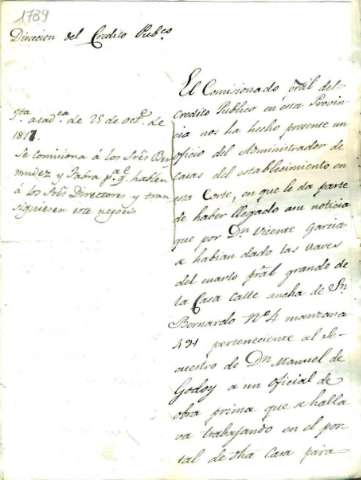 1789
Direccion del Credito Pubco.
Jta. acadca. de 25 de octe. de
1817.
Se comisiona á los Sres. Ber
mudez y Pabra pa. qe. hablen
á los Sres. Directores y tran
siguiesen este negocio
El Comisionado pral. del
Credito Publico en esta Provin
cia nos ha hecho presente un
oficio del Administrador de
casas del establecimiento en
esta Corte, en que le da parte
de haber llegado a su noticia
que por Dn. Vicente Garcia
se habian dado las llaves
del cuarto pral. grande de
la Casa calle ancha de Sn.
Bernardo No. 4 manzana
491 perteneciente al Se
cuestro de Dn. Manuel de
Godoy a un oficial de
obra prima que se halla
va trabajando en el por
tal de dha casa para